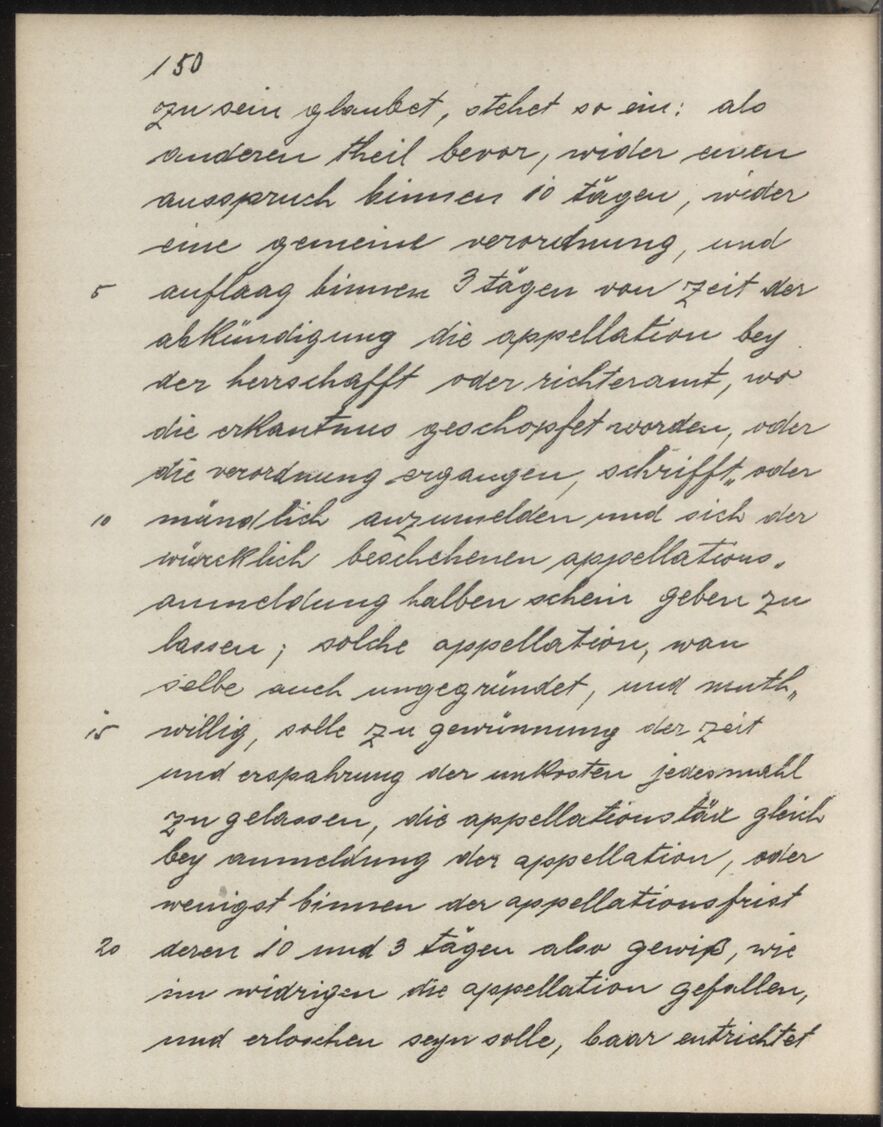 150
zu sein glaubet, stehet so ein: als
anderen theil bevor, wider einen
ausspruch binnen 10 tägen, wider
eine gemeine verordnung, und
5 auflaag binnen 3 tägen von zeit der
abkündigung die appellation bey
der herrschafft oder richteramt, wo
die erkantnus geschopfet worden, oder
die verordnung ergangen, schrifft„ oder
10 mündlich anzumelden und sich der
würcklich beschehenen appellations„
anmeldung halben schein geben zu
lassen; solche appellation, wan
selbe auch ungegründet, und muth„
15 willig, solle zu gewünnung der zeit
und erspahrung der unkosten jedesmahl
zu gelassen, die appellationstäx gleich
bey anmeldung der appellation, oder
wenigst binnen der appellationsfrist
20 deren 10 und 3 tägen also gewiß, wie
im widrigen die appellation gefallen,
und erloschen seyn solle, baar entrichtet